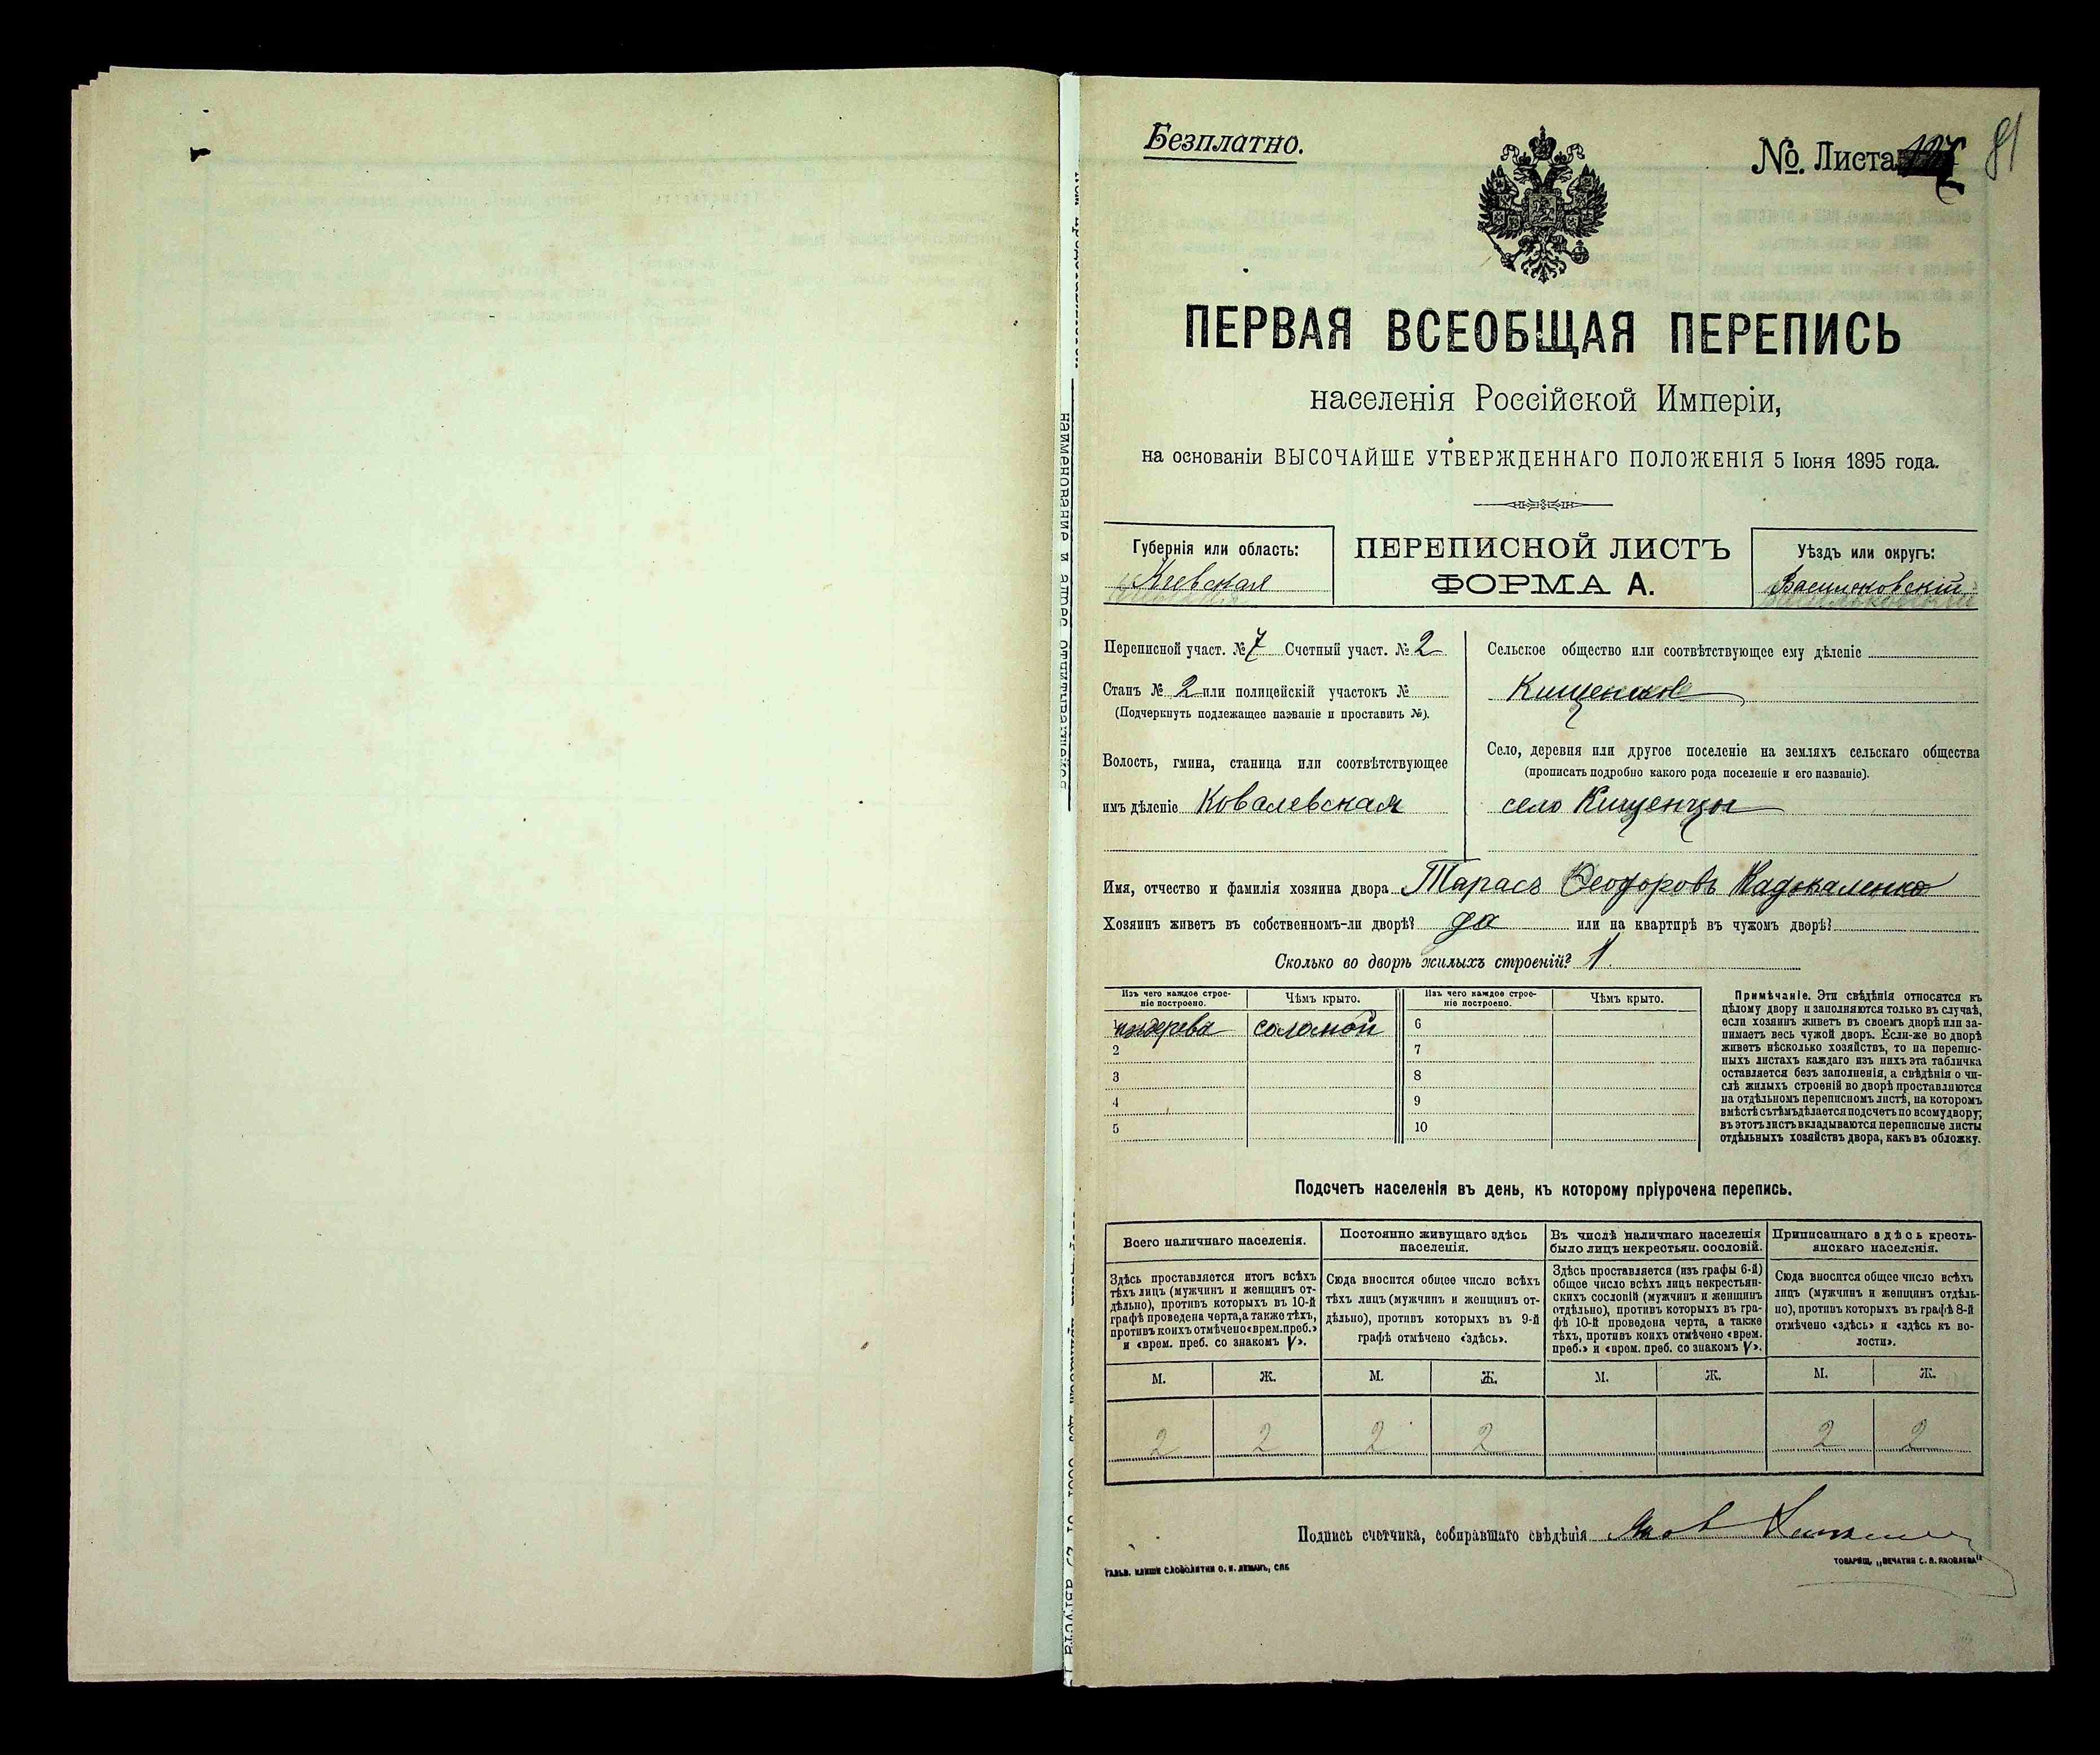 Безплатно.
№. Листа
81
ПЕРВАЯ ВСЕОБЩАЯ ПЕРЕПИСЬ
населенія Россійской Имперіи,
на основаніи ВЫСОЧАЙШЕ УТВЕРЖДЕННАГО ПОЛОЖЕНІЯ 5 Іюня 1895 года.
Губернія или область:
Кіевская
ПЕРЕПИСНОЙ ЛИСТЪ
ФОРМА А.
Уѣздъ или округъ:
Васильковскій
Переписной участ. № 7 Счетный участ. № 2
Станъ № 2 или полицейскій участокъ №
(Подчеркнуть подлежащее названіе и проставить №).
Волость, гмина, станица или соотвѣтствующее
имъ дѣленіе Ковалевская
Сельское общество или соотвѣтствующее ему дѣленіе
Село, деревня или другое поселеніе на земляхъ сельскаго общества
(прописать подробно какого рода поселеніе и его названіе).
село Кищенцы
Имя, отчество и фамилія хозяина двора Тарасъ Ѳеодоровъ
Хозяинъ живетъ въ собственномъ-ли дворѣ? да или на квартирѣ въ чужомъ дворѣ?
Сколько во дворѣ жилыхъ строеній? 1
Изъ чего каждое строе-
ніе построено.
Чѣмъ крыто.
Изъ чего каждое строе-
ніе построено.
Чѣмъ крыто.
изъ дерева соломой 6
2 7
3 8
4 9
5 10
Примѣчаніе. Эти свѣдѣнія относятся къ
цѣлому двору и заполняются только въ случаѣ,
если хозяинъ живетъ въ своемъ дворѣ или за-
нимаетъ весь чужой дворъ. Если-же во дворѣ
живетъ нѣсколько хозяйствъ, то на перепис-
ныхъ листахъ каждаго изъ нихъ эта табличка
оставляется безъ заполненія, а свѣдѣнія о чи-
слѣ жилыхъ строеній во дворѣ проставляются
на отдѣльномъ переписномъ листѣ, на которомъ
вмѣстѣ съ тѣмъ дѣлается подсчетъ по всему двору;
въ этотъ листъ вкладываются переписные листы
отдѣльныхъ хозяйствъ двора, какъ въ обложку.
Подсчетъ населенія въ день, къ которому пріурочена перепись.
Всего наличнаго населенія.
Здѣсь проставляется итогъ всѣхъ
тѣхъ лицъ (мужчинъ и женщинъ от-
дѣльно), противъ которыхъ въ 10-й
графѣ проведена черта, а также тѣхъ,
противъ коихъ отмѣчено «врем. преб.»
и «врем. преб. со знакомъ V».
Постоянно живущаго здѣсь
населенія.
Сюда вносится общее число всѣхъ
тѣхъ лицъ (мужчинъ и женщинъ от-
дѣльно), противъ которыхъ въ 9-й
графѣ отмѣчено «здѣсь».
Въ числѣ наличнаго населенія
было лицъ некрестьян. сословій.
Здѣсь проставляется (изъ графы 6-й)
общее число всѣхъ лицъ некрестьян-
скихъ сословій (мужчинъ и женщинъ
отдѣльно), противъ которыхъ въ гра-
фѣ 10-й проведена черта, а также
тѣхъ, противъ коихъ отмѣчено «врем.
преб.» и «врем. преб. со знакомъ V».
Приписаннаго здѣсь кресть-
янскаго населенія.
Сюда вносится общее число всѣхъ
лицъ (мужчинъ и женщинъ отдѣль-
но), противъ которыхъ въ графѣ 8-й
отмѣчено «здѣсь» и «здѣсь къ во-
лости».
М. Ж. М. Ж. М. Ж. М. Ж.
2 2 2 2 2 2
Подпись счетчика, собиравшаго свѣдѣнія
ГАЛЬВ. КЛИШЕ СЛОВОЛИТНИ О. И. ЛЕМАНЪ, СПБ
ТОВАРИЩ. „ПЕЧАТНЯ С. П. ЯКОВЛЕВА"
наименование и адрес